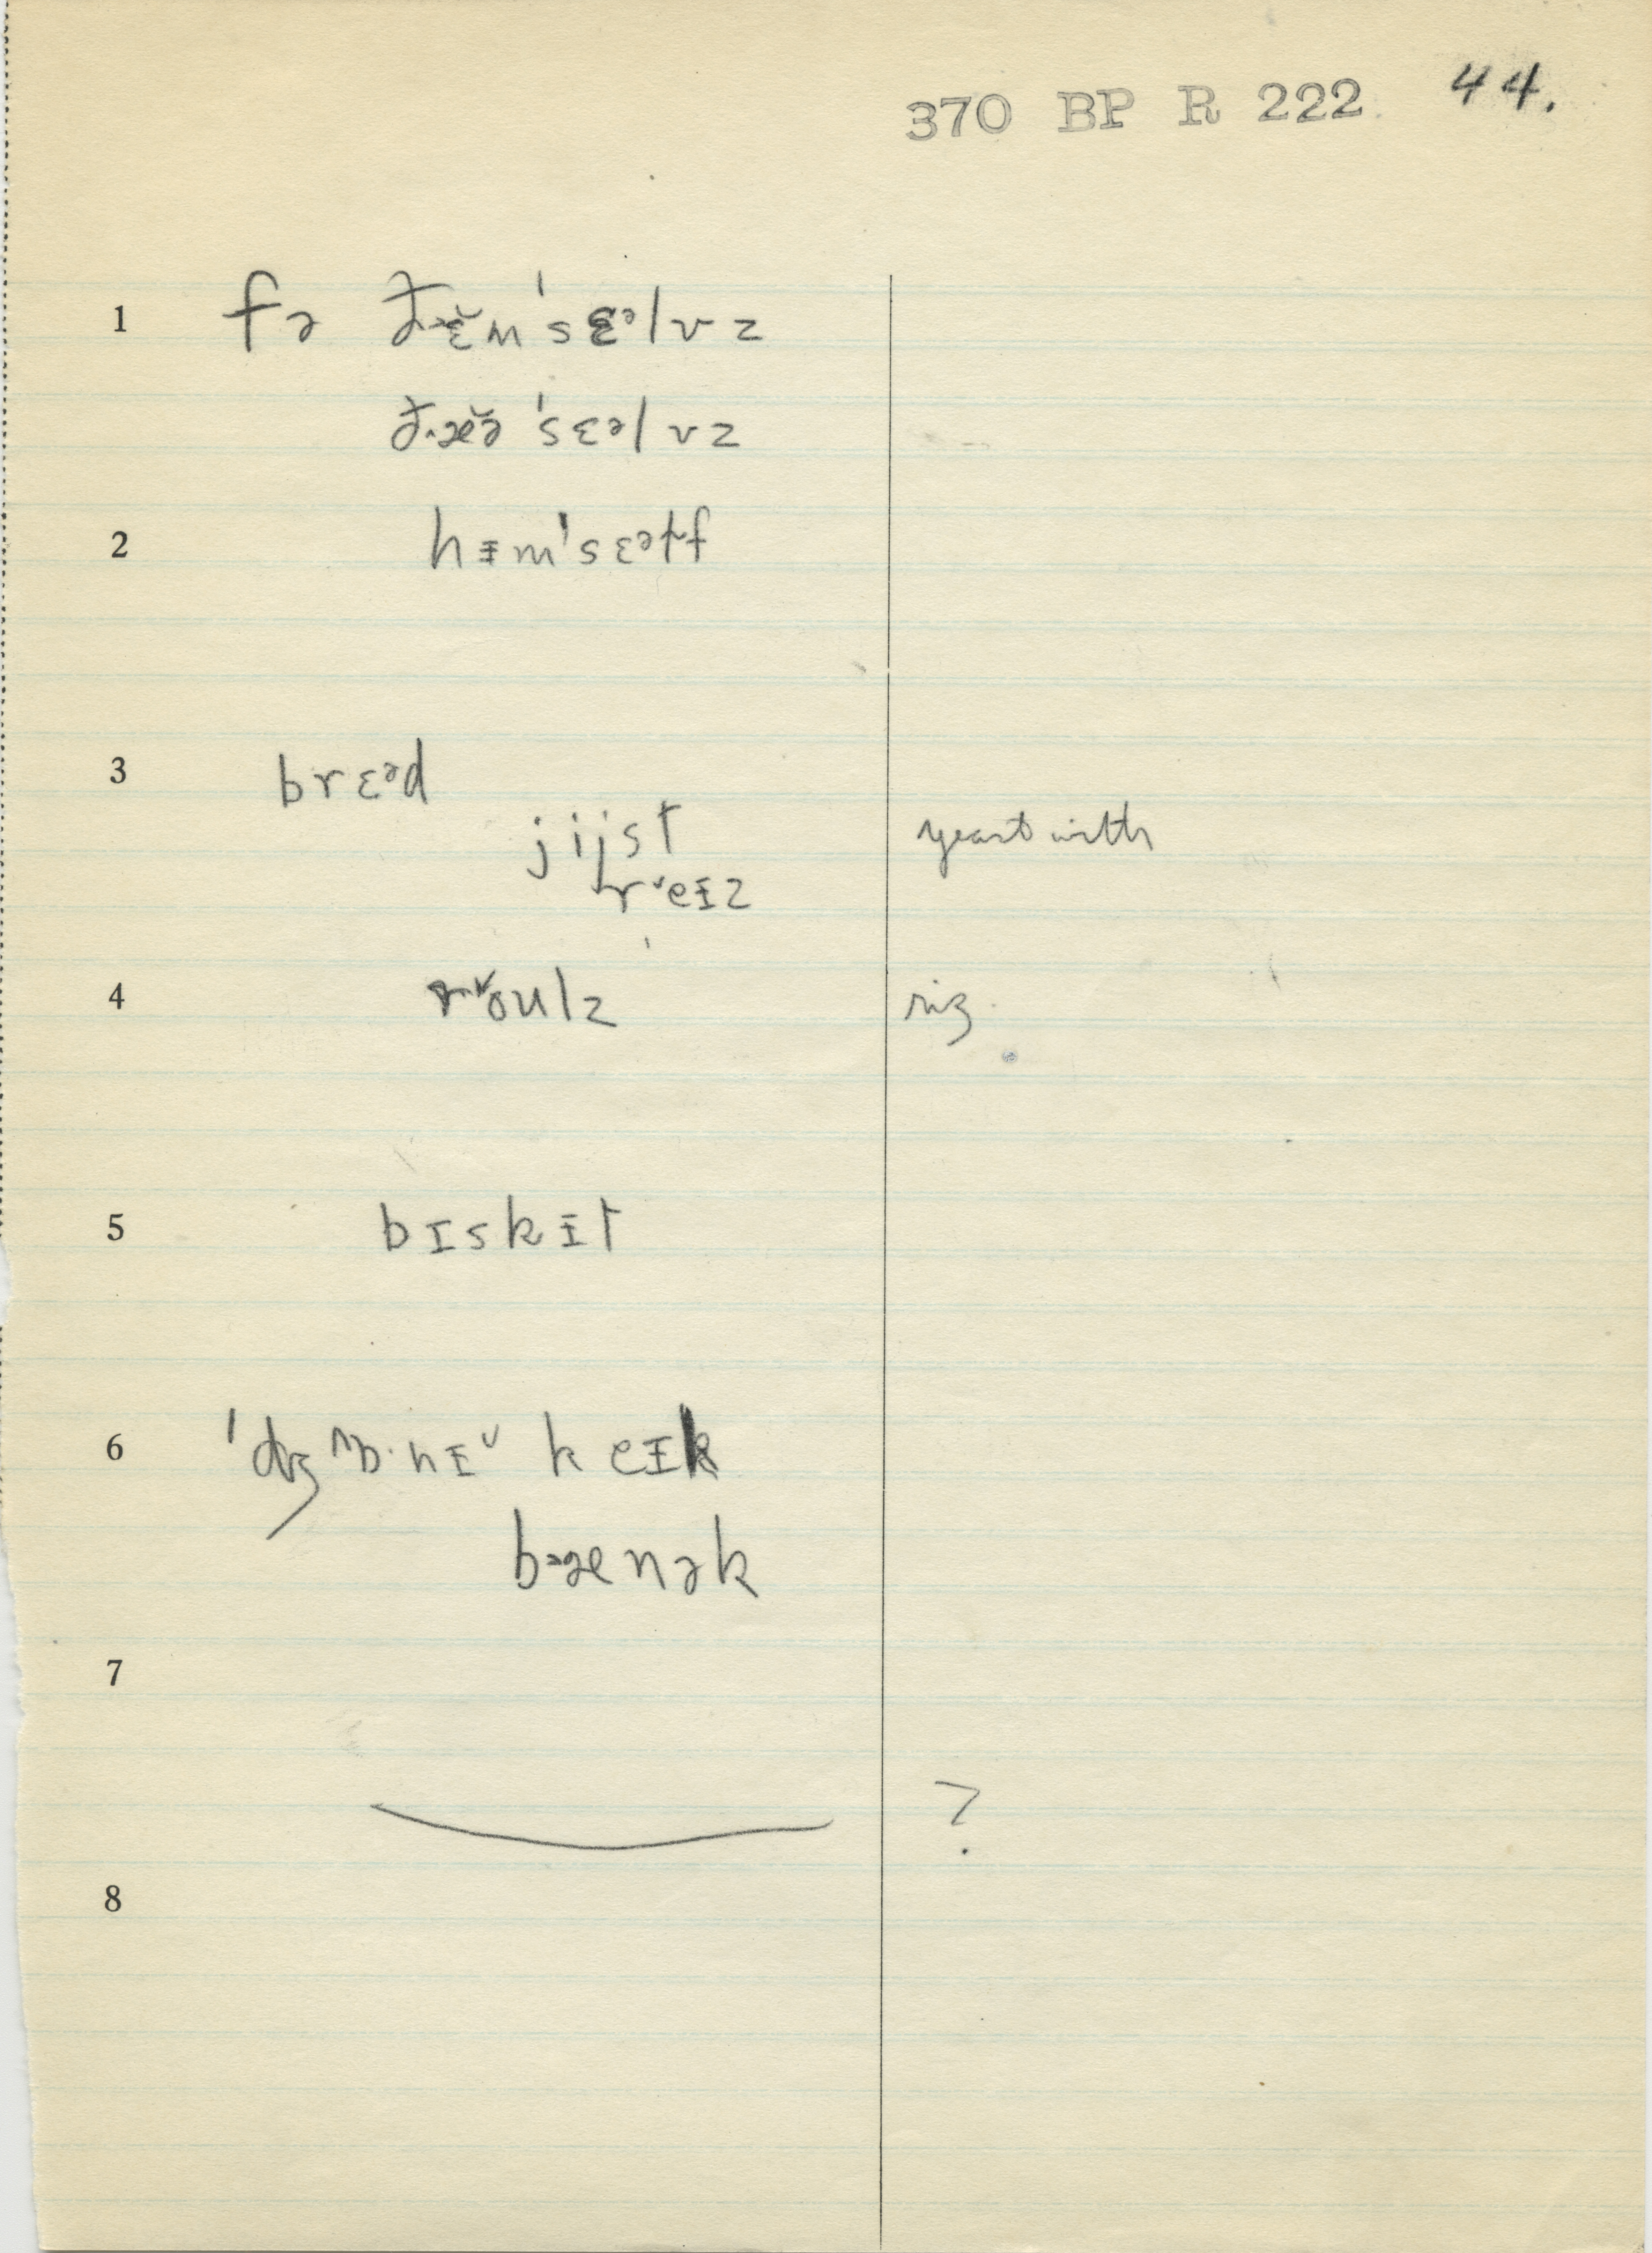 370 BP R 222. 44.
1 fə ðɛ̆m'sɛᵊlvz
ðæə̆ 'sɛᵊlvz
2 hɪm'sɛᵊɫf
3 brɛᵊd
jijst yeast with
reɪz
4 roulz riz.
5 bɪskɪt
6 'dʒɒnɪ keɪk
bænək
7
?
8